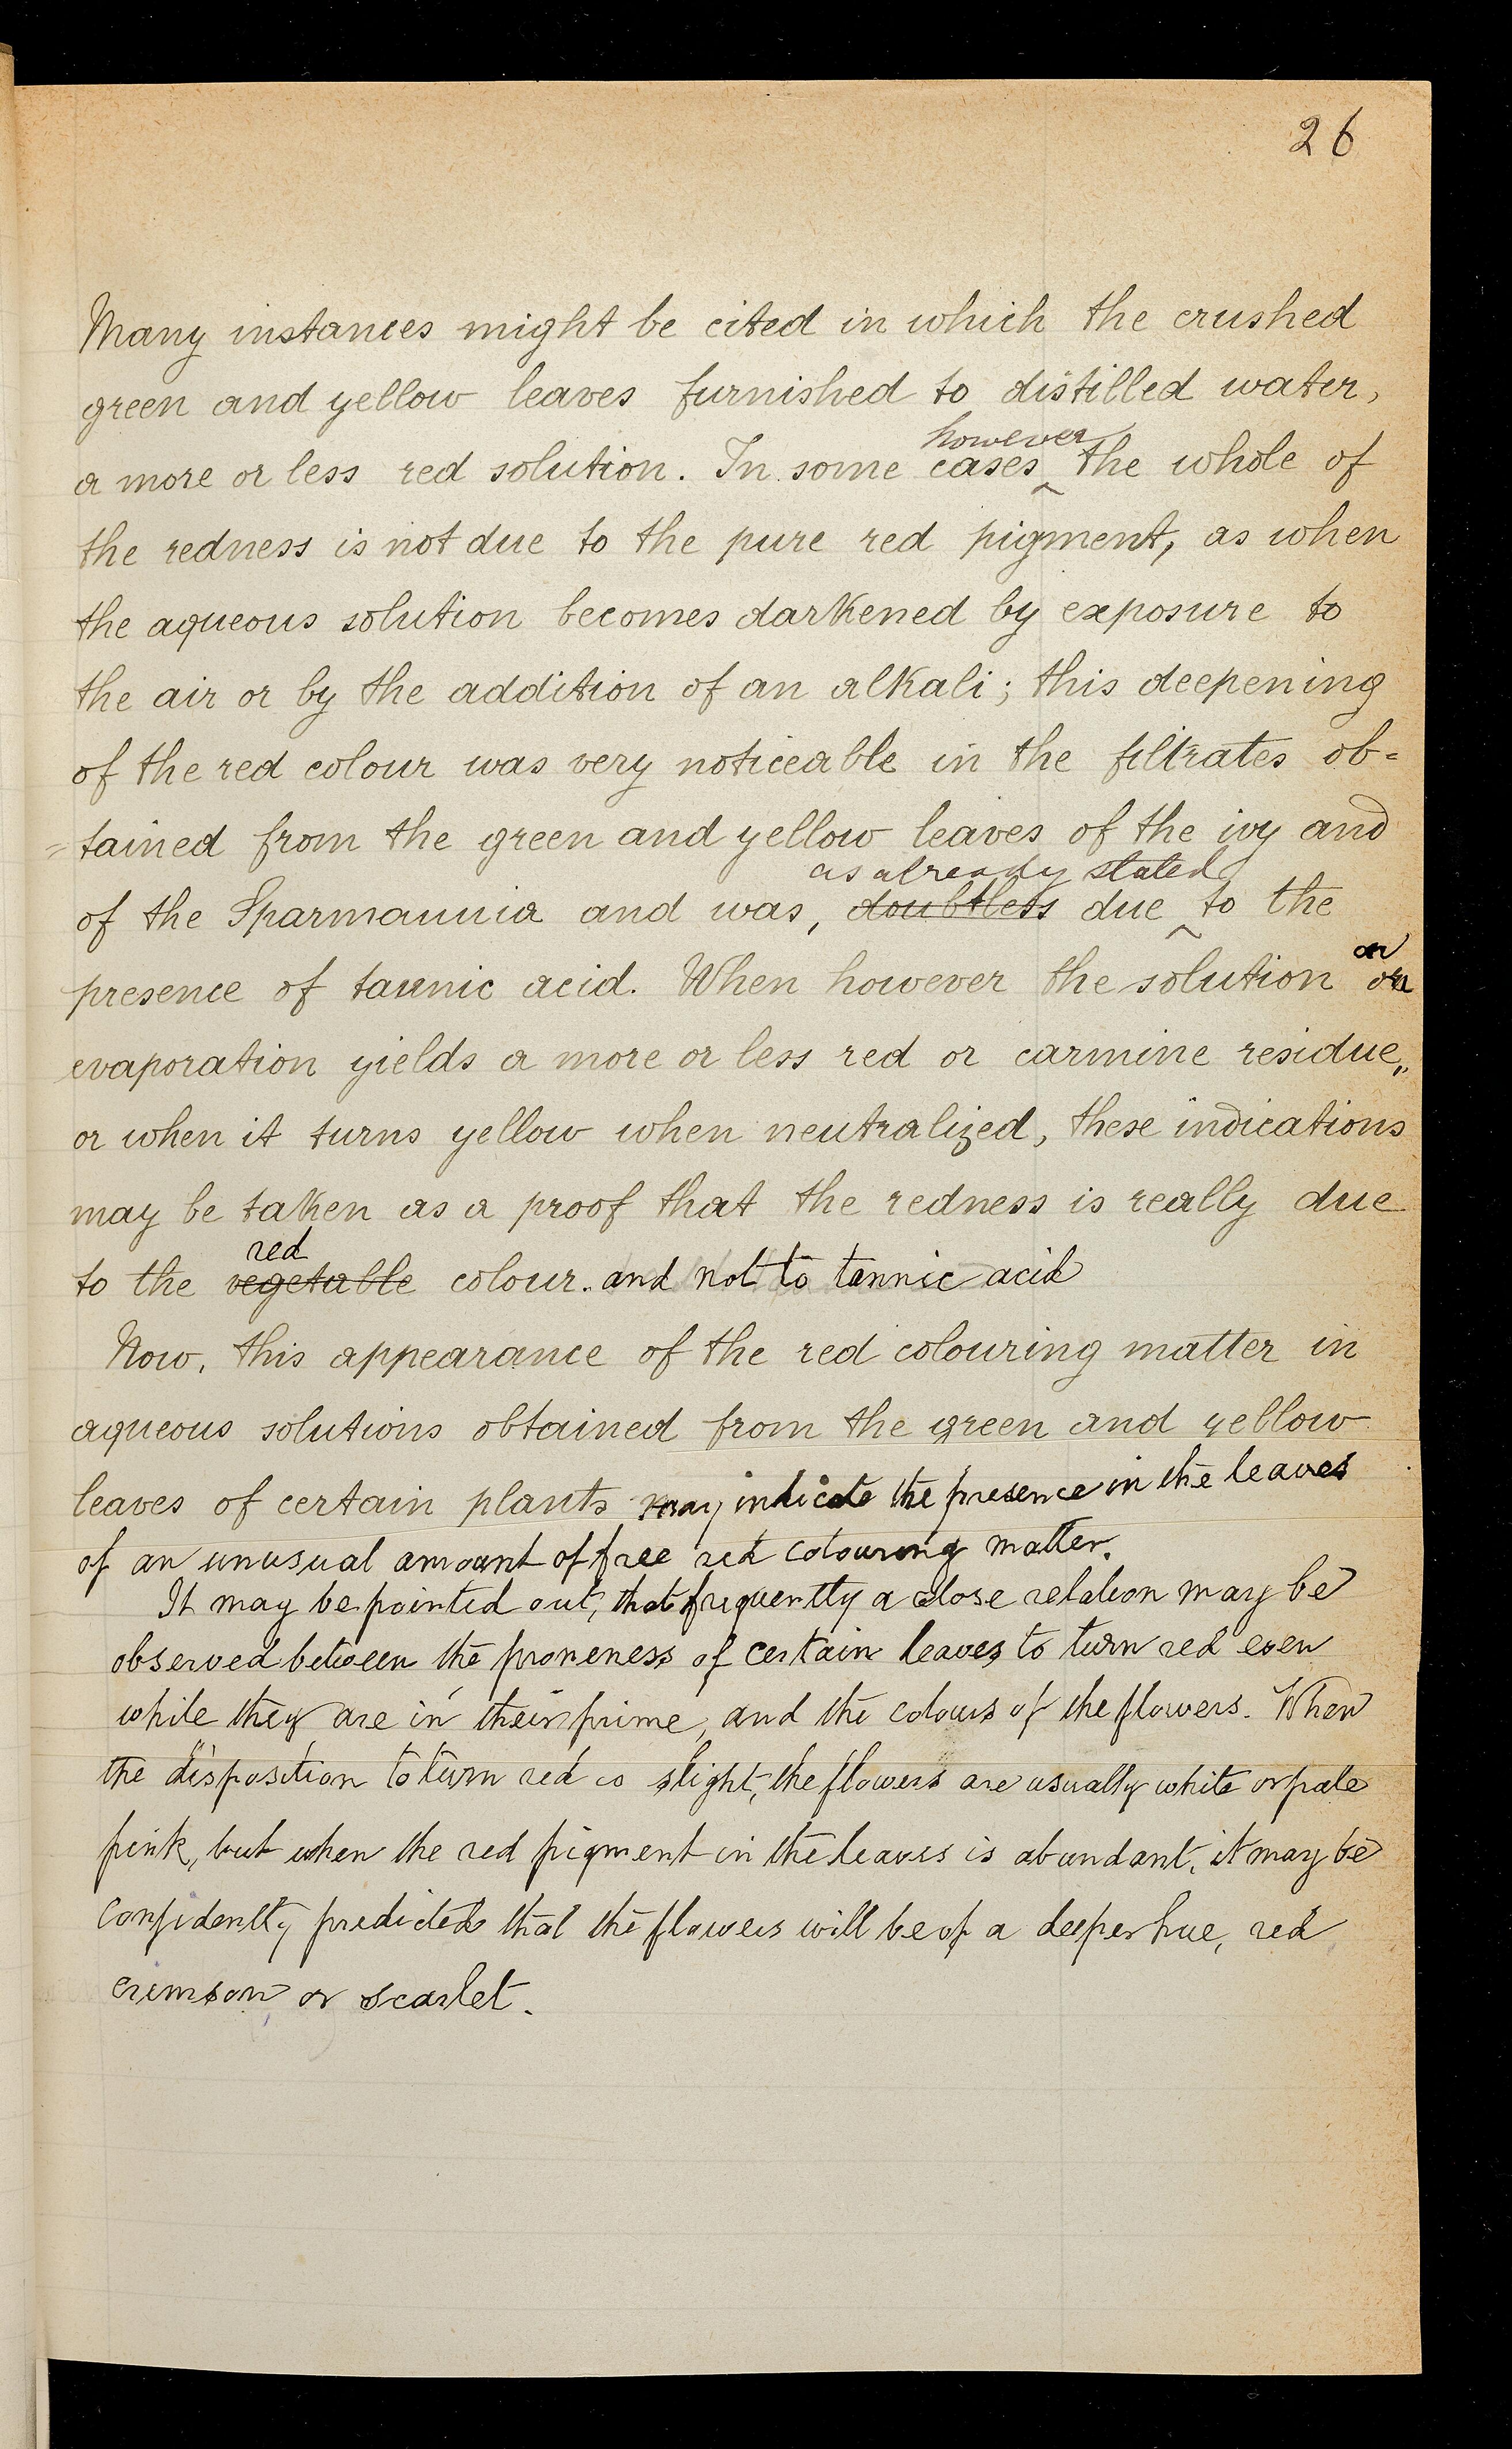 26
Many instances might be cited in which the crushed
green and yellow leaves furnished to distilled water,
however
a more or less red solution. In some cases ‸ the whole of
the redness is not due to the pure red pigment, as when
the aqueous solution becomes darkened by exposure to
the air or by the addition of an alkali; this deepening
of the red colour was very noticeable in the filtrates ob=
=tained from the green and yellow leaves of the ivy and
as already stated
of the Sparmannia and was, doubtless due ‸ to the
on
presence of tannic acid. When however the solution on
evaporation yields a more or less red or carmine residue,,
or when it turns yellow when neutralized, these indications
may be taken as a proof that the redness is really due
red
to the vegetable colour. and not to tannic acid
Now, this appearance of the red colouring matter in
aqueous solutions obtained from the green and yellow
leaves of certain plants may indicate the presence in the leaves
of an unusual amount of free red colouring matter.
It may be pointed out, that frequently a close relation may be
observed between the proneness of certain leaves to turn red even
while they are in their prime, and the colours of the flowers. When
the disposition to turn red is slight, the flowers are usually white or pale
pink, but when the red pigment in the leaves is abundant, it may be
confidently predicted that the flowers will be of a deeper hue, red
crimson or scarlet.